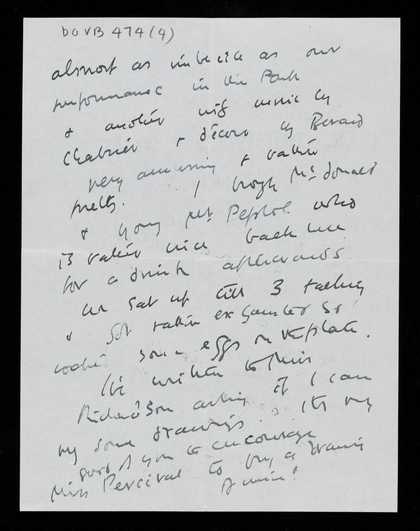 DOVB 474(4)
almost as imbecile as our
performance in the Park
& another with music by
Chabrier & décors by Berard
very amusing & rather
pretty. I brought McDonald
& young Mr who
is rather nice back here
for a drink afterwards
we sat up till 3 talking
& got rather exhausted so
some eggs on the plate.
I've written to Miss
Richardson asking if I can
my some drawings. its very
good of you to encourage
Miss Percival to buy a drawing
of mine!